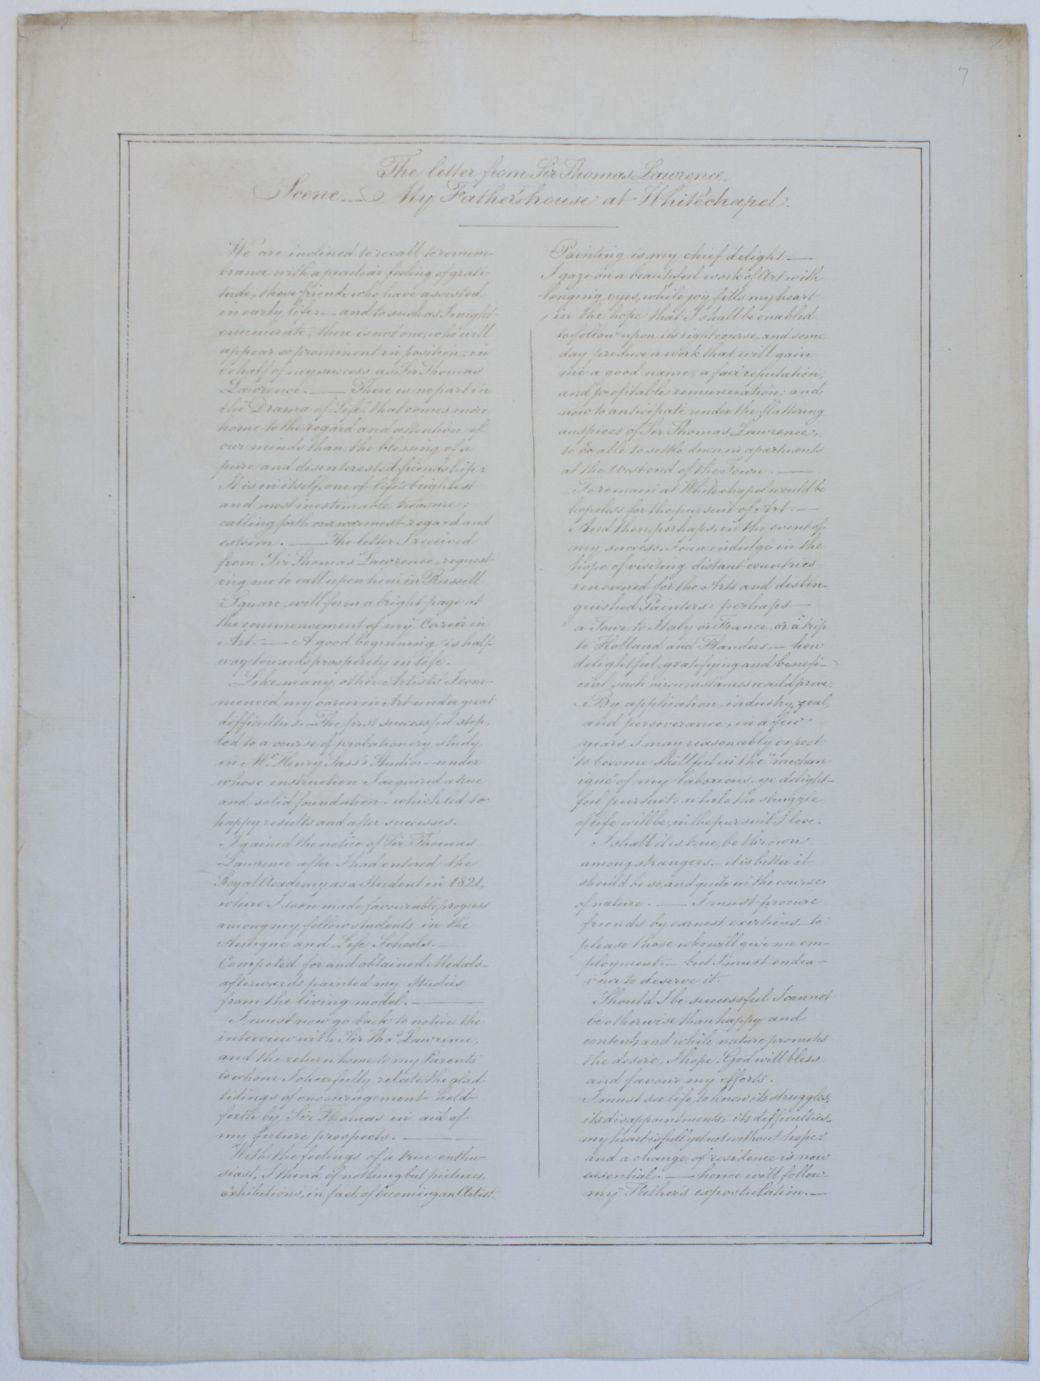 7
The letter from Sir Thomas Lawrence.
Scene — My Father's house at Whitechapel.
We are inclined to recall to remem-
brance with a peculiar feeling of grati-
tude, those friends who have assisted
in early life — and to such as I might
enumerate, there is not one, who will
appear so prominent in position, in
behalf of my success as Sir Thomas
Lawrence. — There is no part in
the Drama of Life, that comes more
home to the regard and attention of
our minds than the blessing of a
pure and disinterested friendship:
It is in itself one of life's brightest
and most inestimable treasures;
calling forth our warmest regard and
esteem. — The letter I received
from Sir Thomas Lawrence, request-
ing me to call upon him in Russell
Square, will form a bright page at
the commencement of my Career in
Art. — A good beginning is half-
way towards prosperity in Life.
Like many other Artists I com-
menced my career in Art under great
difficulties. — The first successful step,
led to a course of probationary study
in Mr. Henry Sass's Studio — under
whose instruction I acquired a true
and solid foundation — which led to
happy results and after successes.
I gained the notice of Sir Thomas
Lawrence after I had entered the
Royal Academy as a Student in 1821,
where I soon made favourable progress
among my fellow students in the
Antique and Life Schools. —
Competed for and obtained Medals —
afterwards painted my Studies
from the living model. —
I must now go back to notice the
interview with Sir Thos. Lawrence,
and the return home to my Parents
to whom I cheerfully relate the glad
tidings of encouragement held
forth by Sir Thomas in aid of
my future prospects. —
With the feelings of a true enthu-
siast, I think of nothing but pictures,
exhibitions, in fact, of becoming an Artist.
Painting is my chief delight —
I gaze on a beautiful work of Art with
longing eyes, while joy fills my heart
in the hope that I shall be enabled
to follow upon its right course, and some
day produce a work that will gain
me a good name, a fair reputation,
and profitable remuneration; and
now to anticipate under the flattering
auspices of Sir Thomas Lawrence,
to be able to settle down in apartments
at the West end of the Town. —
To remain at Whitechapel would be
hopeless for the pursuit of Art. —
And then, perhaps, in the event of
my success, I can indulge in the
hope of visiting distant countries
renowned for the Arts and distin-
guished Painters: perhaps —
a Tour to Italy or France, or a trip
to Holland and Flanders, — how
delightful, gratifying and benefi-
cial such circumstances would prove.
By application, industry, zeal,
and perseverance, in a few
years, I may reasonably expect
to become skillful in the "mechan-
ique" of my laborious, yet delight-
ful pursuit: while the struggle
of life will be in the pursuit I love.
I shall it is true, be thrown
among strangers, — it is better it
should be so, and quite in the course
of nature. — I must procure
friends by earnest exertions to
please those who will give me em-
ployment; — but I must endea-
vour to deserve it.
Should I be successful I cannot
be otherwise than happy and
content, and while nature promotes
the desire, I hope God will bless
and favour my efforts.
I must see life, to know its struggles,
its disappointments, its difficulties.
my heart is full yet not without hope:
and a change of residence is now
essential. — hence will follow
my Father's expostulation. —